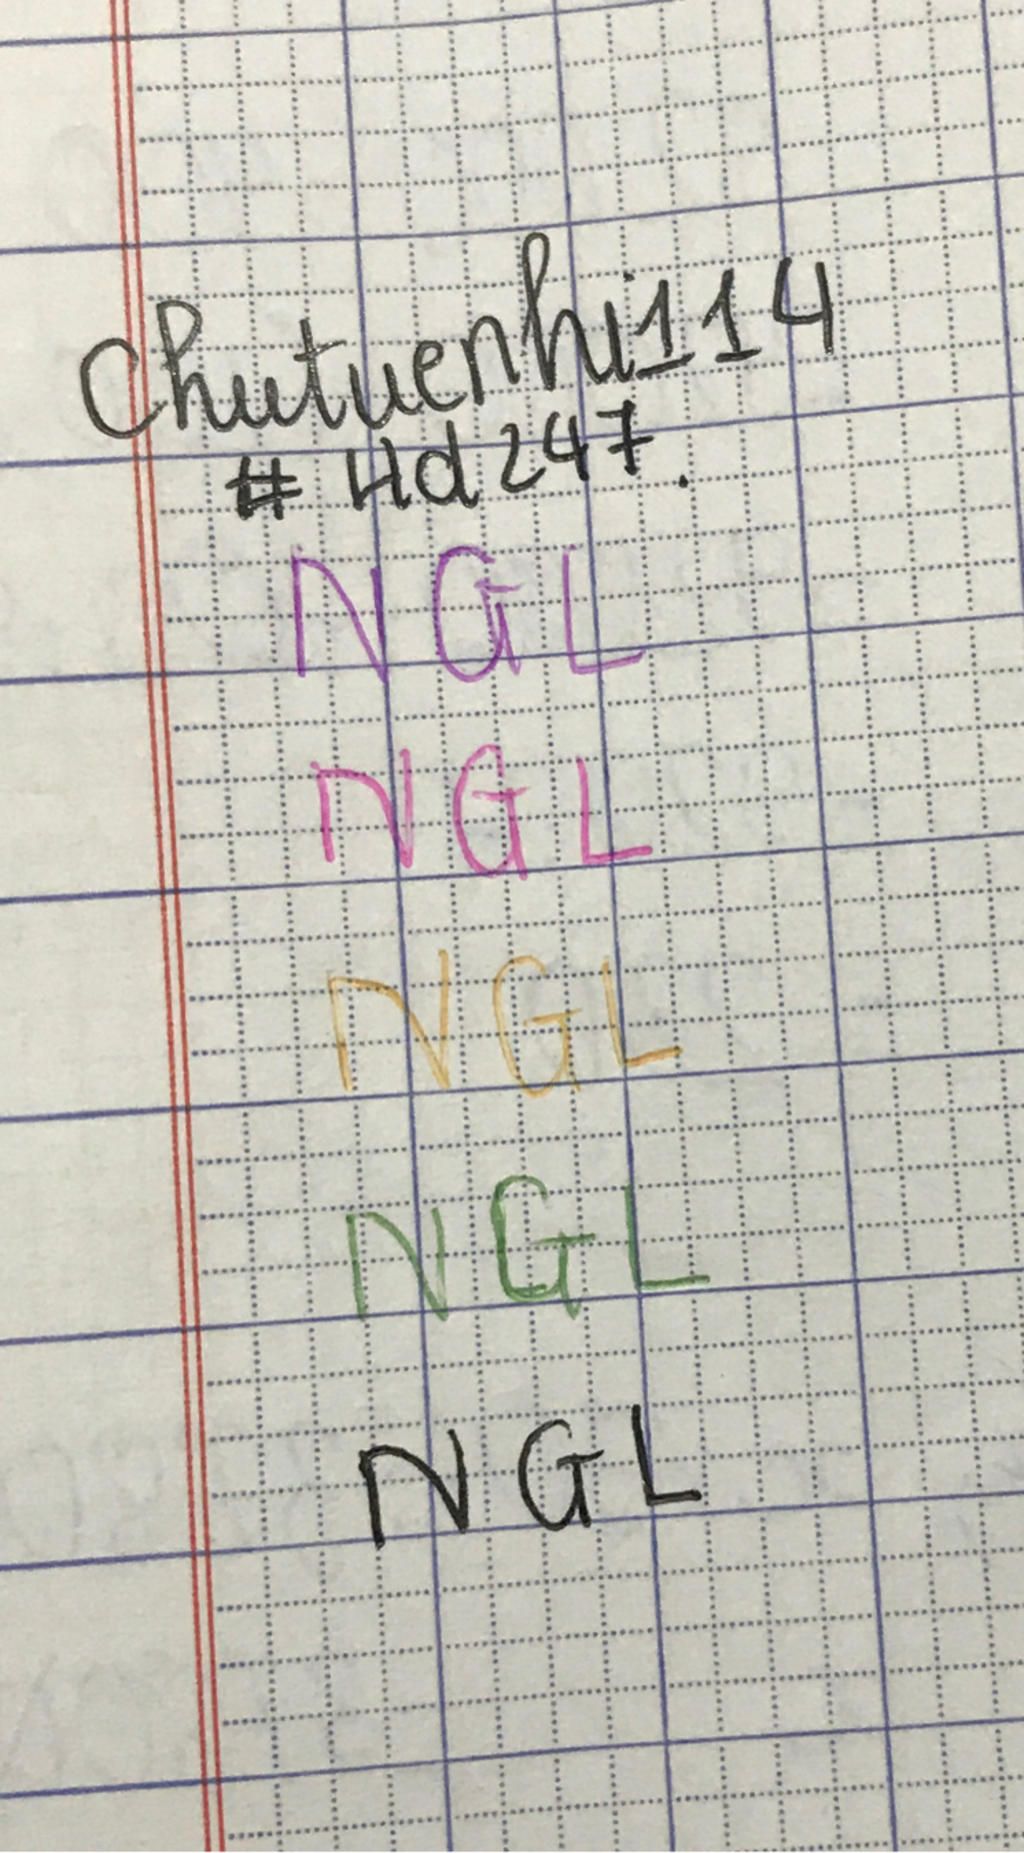 Chutuenhi114
# Hd247.
NGL
NGL
NGL
NGL
NGL